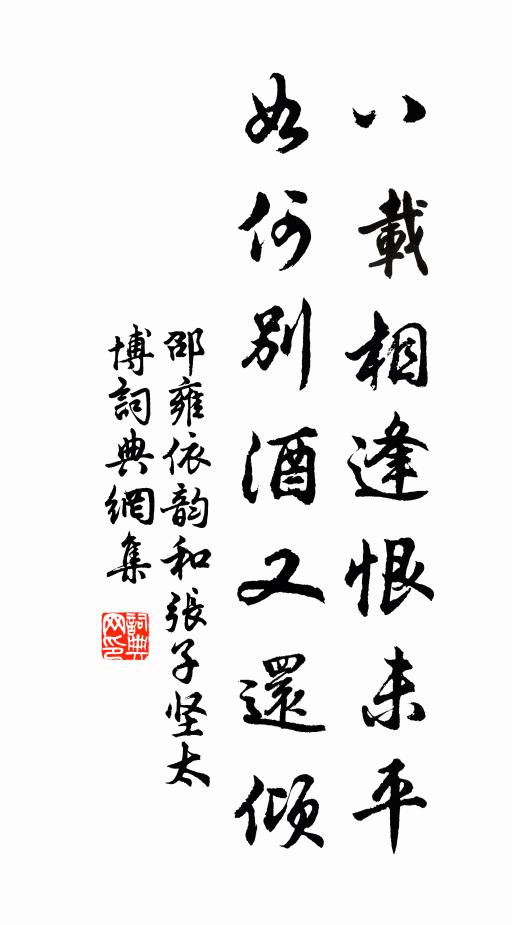 八載相逢恨未平
如何別酒又還傾
邵雍依韵和張子坚太
博詞典網集
詞典网印